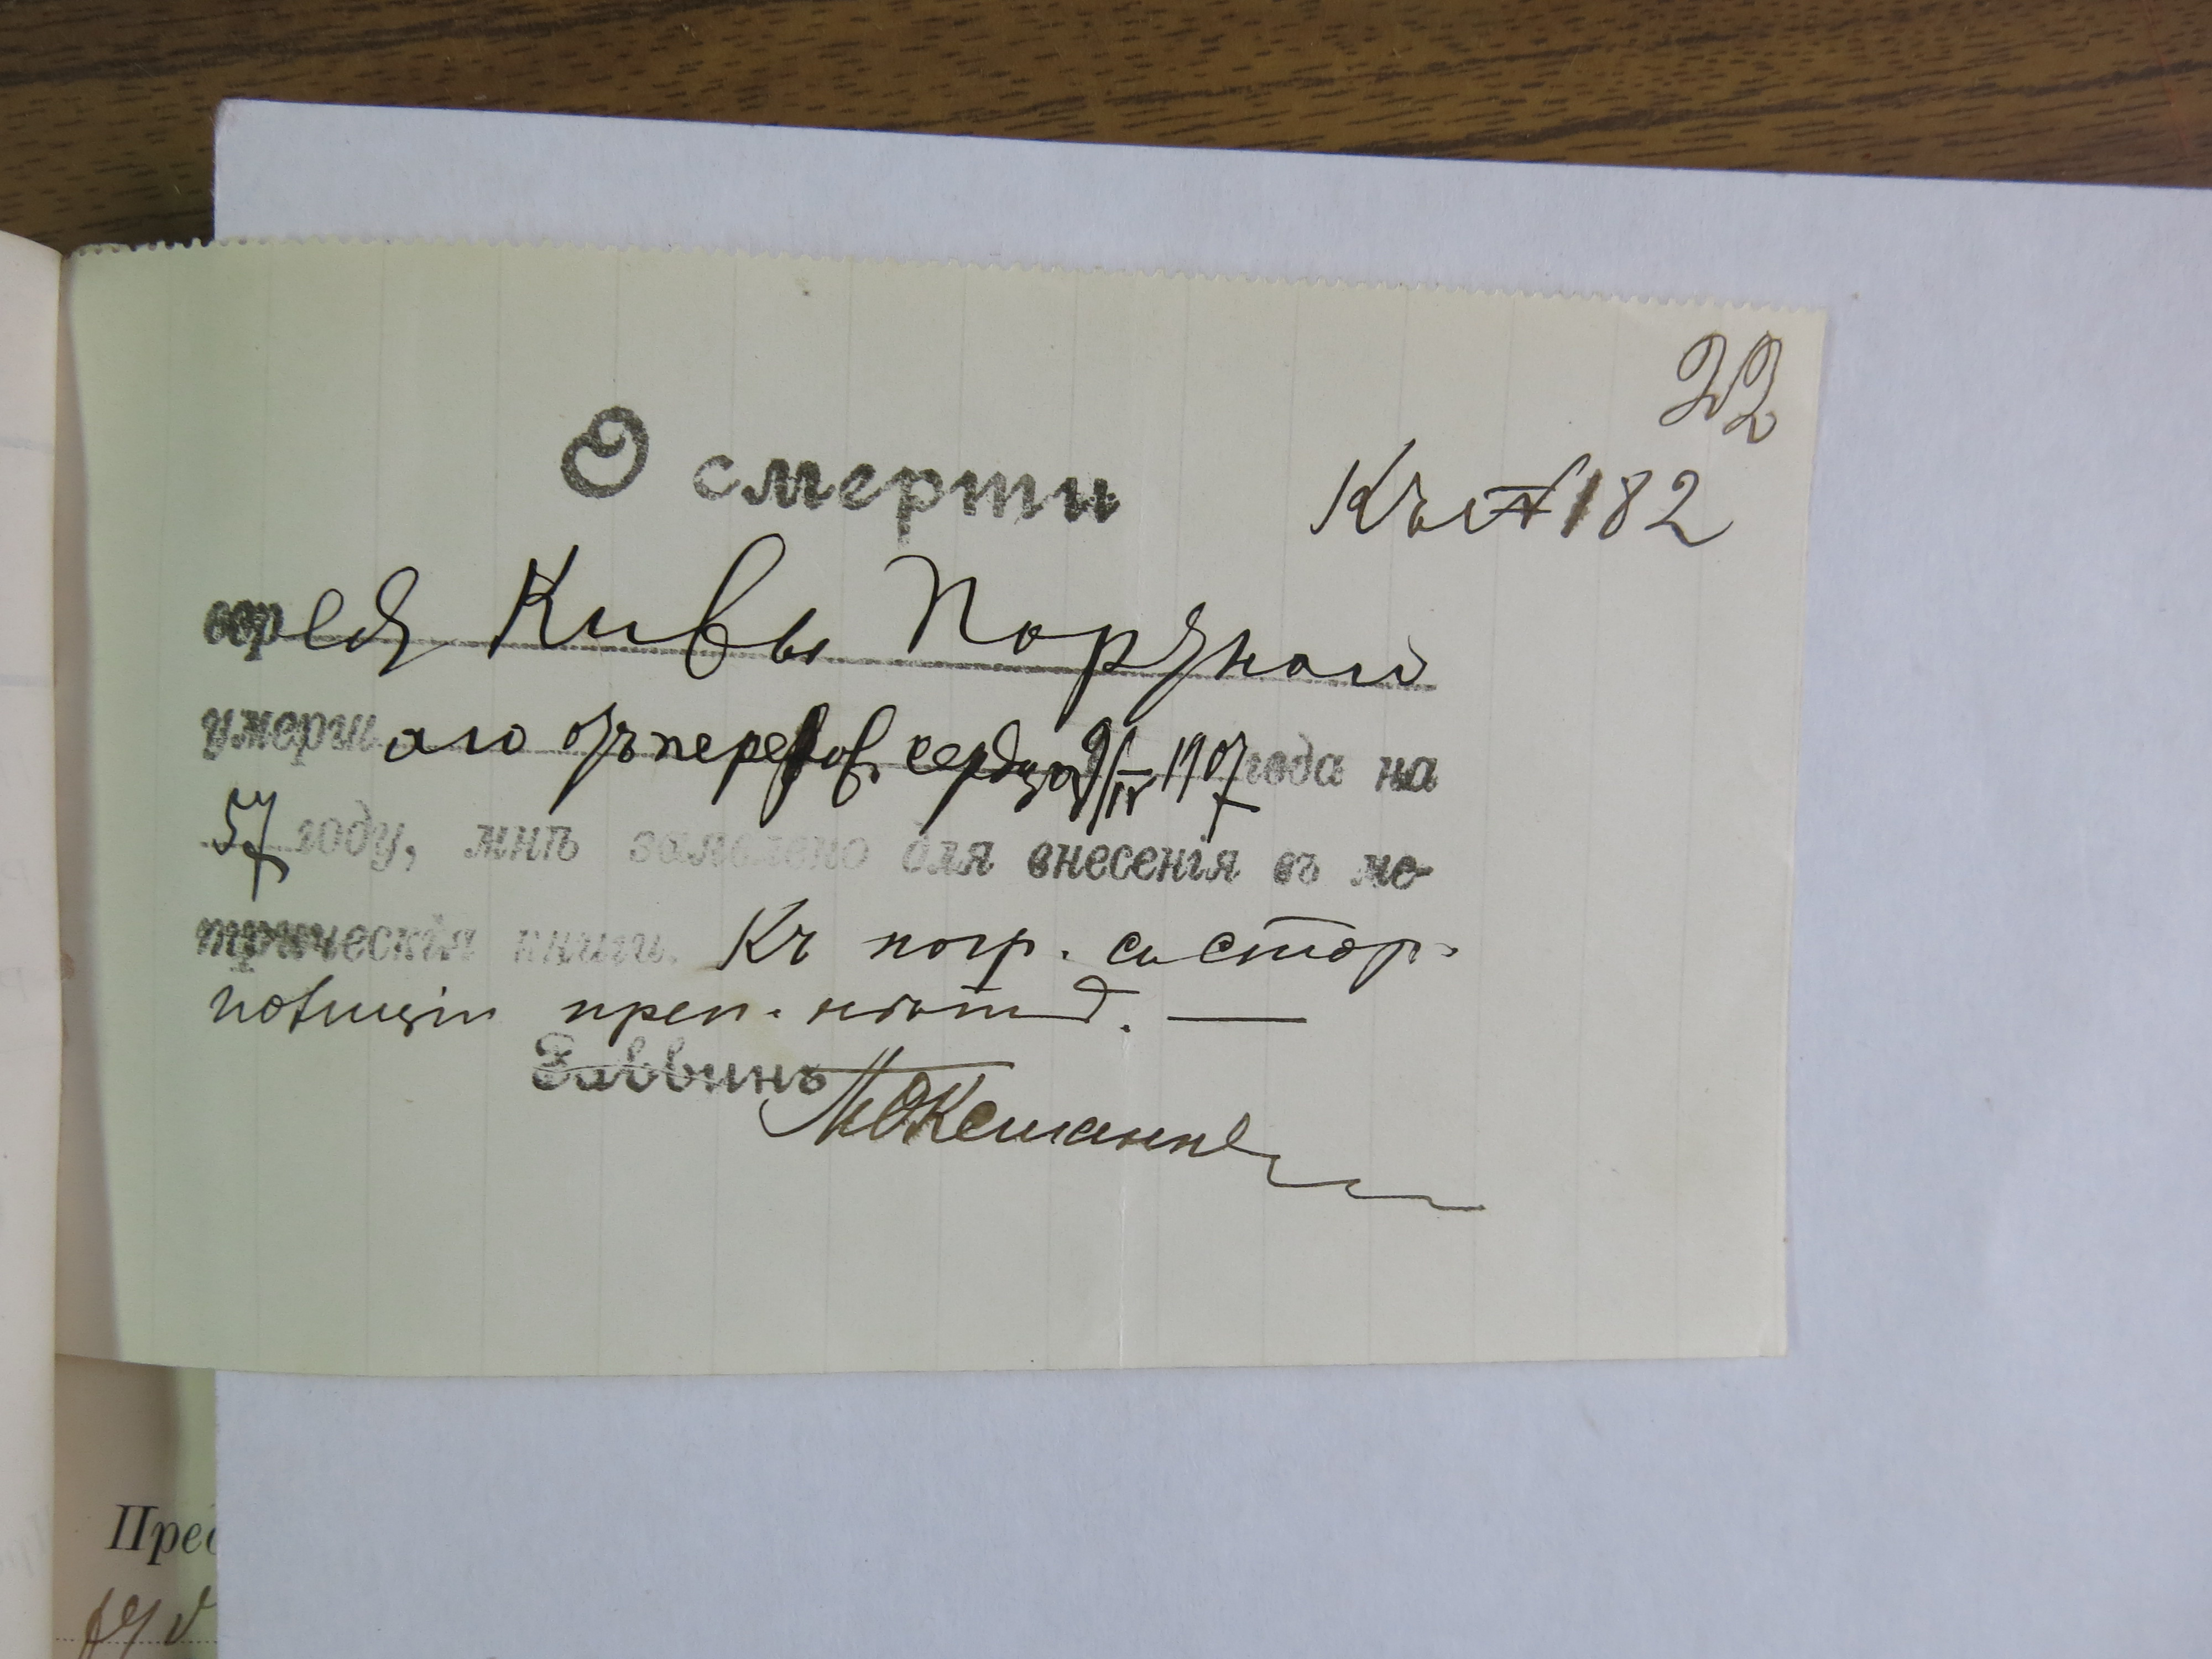 22
О смерти
Къ № 182
еврея Кивы Порзного
умершаго отъ порок. сердца 9/IV 1907 года на
57 году, мнѣ заявлено для внесенія въ ме-
трическія книги. Къ погр. со стор.
полиціи преп. нѣтъ.
Раввинъ
Пред